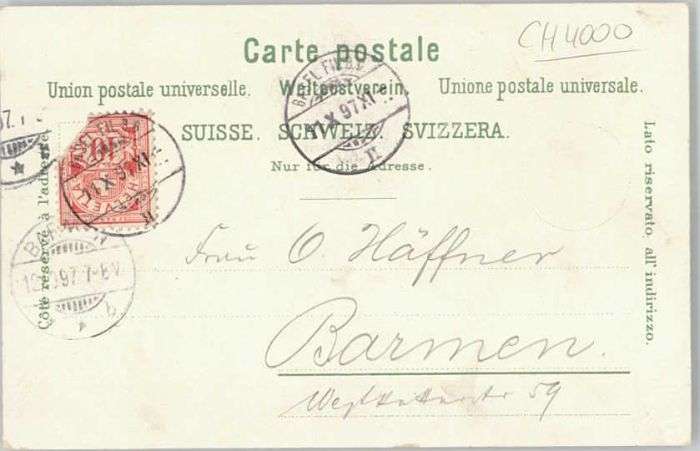 CH4000
Carte postale
Union postale universelle. Weltpostverein. Unione postale universale.
SUISSE. SCHWEIZ. SVIZZERA.
Nur für die Adresse.
Côté réservé à l'adresse.
Lato riservato all' indirizzo.
BASEL
11 X 97 XI
BASEL
11 X 97 XI
HELVETIA
10
97
97 7-8V
Frau O. Häffner
Barmen.
59